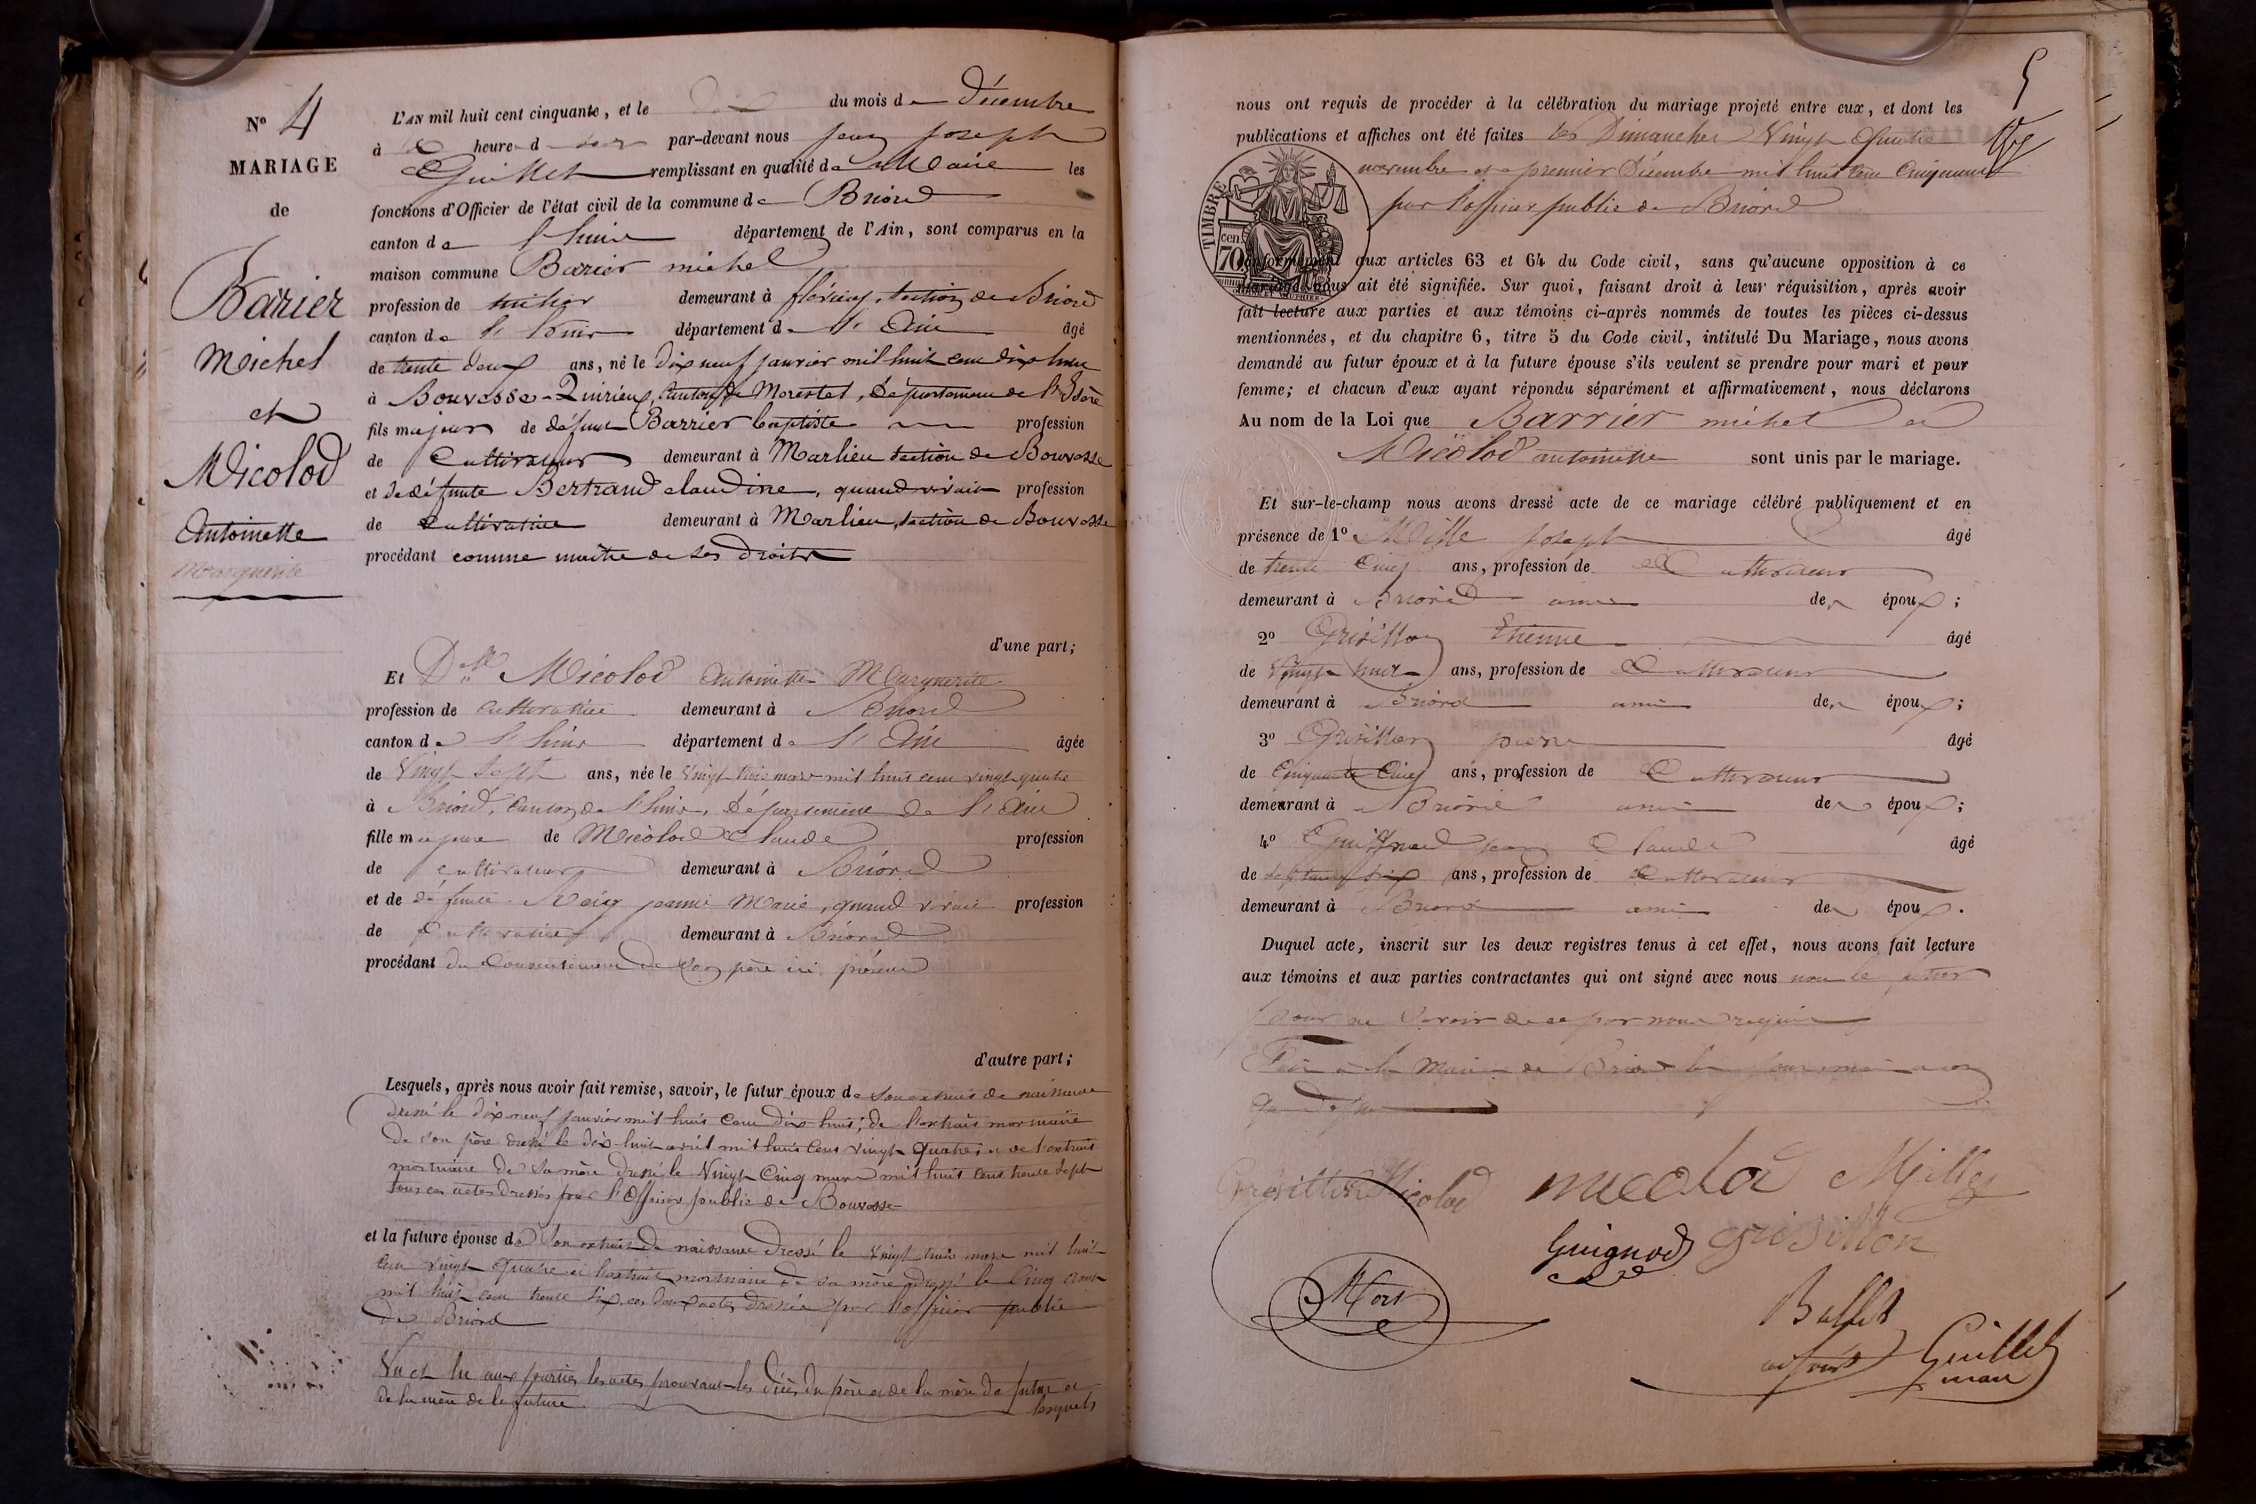 N° 4
MARIAGE
de
Barier
Michel
et
Nicolod
Antoinette
Marguerite
L'AN mil huit cent cinquante, et le Dix du mois de Décembre
à heure d soir par-devant nous jean joseph
Guillet remplissant en qualité de Maire les
fonctions d'Officier de l'état civil de la commune de Briord
canton de lhuis département de l'Ain, sont comparus en la
maison commune Barier michel
profession de demeurant à flérieu, section de Briord
canton de lhuis département de l'Ain âgé
de trente deux ans, né le dix neuf janvier mil huit cent dix huit
à Bouvesse-Quirieu, canton de Morestel, Département de l'Isère
fils majeur de défunt Barrier baptiste profession
de Cultivateur demeurant à Marlieu section de Bouvesse
et de défunte Bertrand claudine, quand vivait profession
de Cultivatrice demeurant à Marlieu, section de Bouvesse
procédant comme maître de ses droits
d'une part;
Et Dlle Nicolod Antoinette Marguerite
profession de cultivatrice demeurant à Briord
canton de lhuis département de l'Ain âgée
de Vingt Sept ans, née le vingt trois mars mil huit cent vingt quatre
à Briord, canton de lhuis, Département de l'Ain
fille majeure de Nicolod Claude profession
de cultivateur demeurant à Briord
et de défunte jeanne Marie, quand vivait profession
de Cultivatrice demeurant à Briord
procédant du Consentement de son père ici présent
d'autre part;
Lesquels, après nous avoir fait remise, savoir, le futur époux de son extrait de naissance
dressé le dix neuf janvier mil huit cent dix huit; de l'extrait mortuaire
de son père dressé le dix huit avril mil huit cent vingt quatre; et de l'extrait
mortuaire de sa mère dressé le Vingt Cinq mars mil huit cent trente sept
tous ces actes dressés par l'Officier public de Bouvesse
et la future épouse de son extrait de naissance dressé le vingt trois mars mil huit
cent vingt quatre et l'extrait mortuaire de sa mère dressé le Cinq août
mil huit cent trente six, ces deux actes dressés par l'officier public
de Briord
Vu et lu aux parties les actes prouvant les décès du père et de la mère du futur et
de la mère de la future lesquels
5
nous ont requis de procéder à la célébration du mariage projeté entre eux, et dont les
publications et affiches ont été faites les Dimanches Vingt Quatre
novembre et premier Décembre mil huit cent Cinquante
par l'officier public de Briord
TIMBRE
70 cen.
conformément aux articles 63 et 64 du Code civil, sans qu'aucune opposition à ce
mariage nous ait été signifiée. Sur quoi, faisant droit à leur réquisition, après avoir
fait lecture aux parties et aux témoins ci-après nommés de toutes les pièces ci-dessus
mentionnées, et du chapitre 6, titre 5 du Code civil, intitulé Du Mariage, nous avons
demandé au futur époux et à la future épouse s'ils veulent se prendre pour mari et pour
femme; et chacun d'eux ayant répondu séparément et affirmativement, nous déclarons
Au nom de la Loi que Barrier michel et
Nicolod antoinette sont unis par le mariage.
Et sur-le-champ nous avons dressé acte de ce mariage célébré publiquement et en
présence de 1° Mille joseph âgé
de trente Cinq ans, profession de Cultivateur
demeurant à Briord ami des époux;
2° Grisillon Etienne âgé
de Vingt huit ans, profession de Cultivateur
demeurant à Briord ami des époux;
3° Grisillon pierre âgé
de Cinquante Cinq ans, profession de Cultivateur
demeurant à Briord ami des époux;
4° Guignod jean Claude âgé
de ans, profession de Cultivateur
demeurant à Briord ami des époux.
Duquel acte, inscrit sur les deux registres tenus à cet effet, nous avons fait lecture
aux témoins et aux parties contractantes qui ont signé avec nous non le
pour ne savoir de ce par nous requis
Fait à la Mairie de Briord les jour mois et an
que dessus
Grisillon Nicolod nicolod Mille
Guignod Grisillon
Mort
Ballet
adjoint Guillet
maire